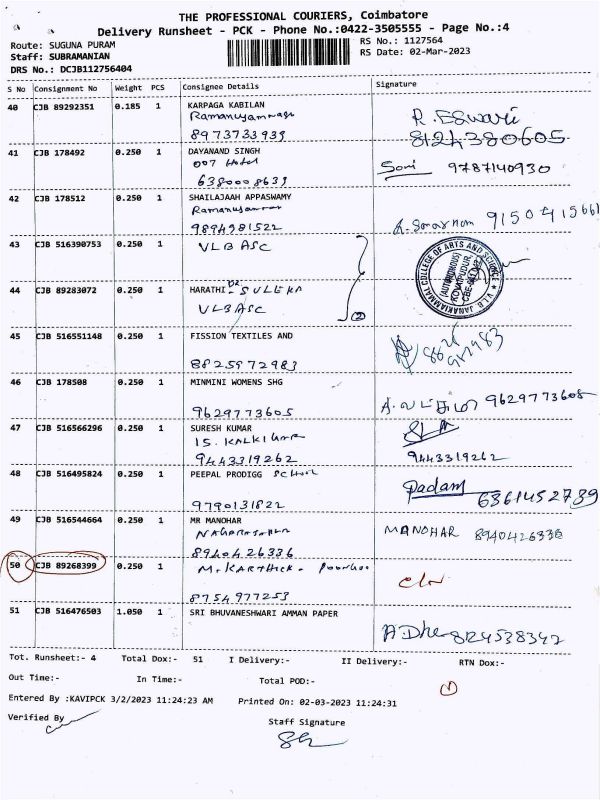 THE PROFESSIONAL COURIERS, Coimbatore
Delivery Runsheet - PCK - Phone No.:0422-3505555 - Page No.:4
Route: SUGUNA PURAM
RS No.: 1127564
Staff: SUBRAMANIAN
RS Date: 02-Mar-2023
DRS No.: DCJB112756404
S No Consignment No Weight PCS Consignee Details Signature
40 CJB 89292351 0.185 1 KARPAGA KABILAN
R. Eswari
8973733939 8124380605
41 CJB 178492 0.250 1 DAYANAND SINGH
007 Hotel Soni 9787140930
6380008639
42 CJB 178512 0.250 1 SHAILAJAAH APPASWAMY
9894981522
43 CJB 516390753 0.250 1 VLB ASC
V.L.B. JANAKIAMMAL COLLEGE OF ARTS AND SCIENCE
(AUTONOMOUS)
KOVAIPUDUR,
44 CJB 89283072 0.250 1 HARATHI Dr SULEKA
VLB ASC
2
45 CJB 516551148 0.250 1 FISSION TEXTILES AND
8825972983
46 CJB 178508 0.250 1 MINMINI WOMENS SHG
9629773605 9629773605
47 CJB 516566296 0.250 1 SURESH KUMAR
15. KALKI
9443319262 9443319262
48 CJB 516495824 0.250 1 PEEPAL PRODIGG SCHOOL
Padam
9790131822 6361452739
49 CJB 516544664 0.250 1 MR MANOHAR
MANOHAR 8940426336
8940426336
50 CJB 89268399 0.250 1 M. KARTHICK
8754977253
51 CJB 516476503 1.050 1 SRI BHUVANESHWARI AMMAN PAPER
8124538342
Tot. Runsheet:- 4 Total Dox:- 51 I Delivery:- II Delivery:- RTN Dox:-
Out Time:- In Time:- Total POD:-
Entered By :KAVIPCK 3/2/2023 11:24:23 AM Printed On: 02-03-2023 11:24:31
Verified By
Staff Signature